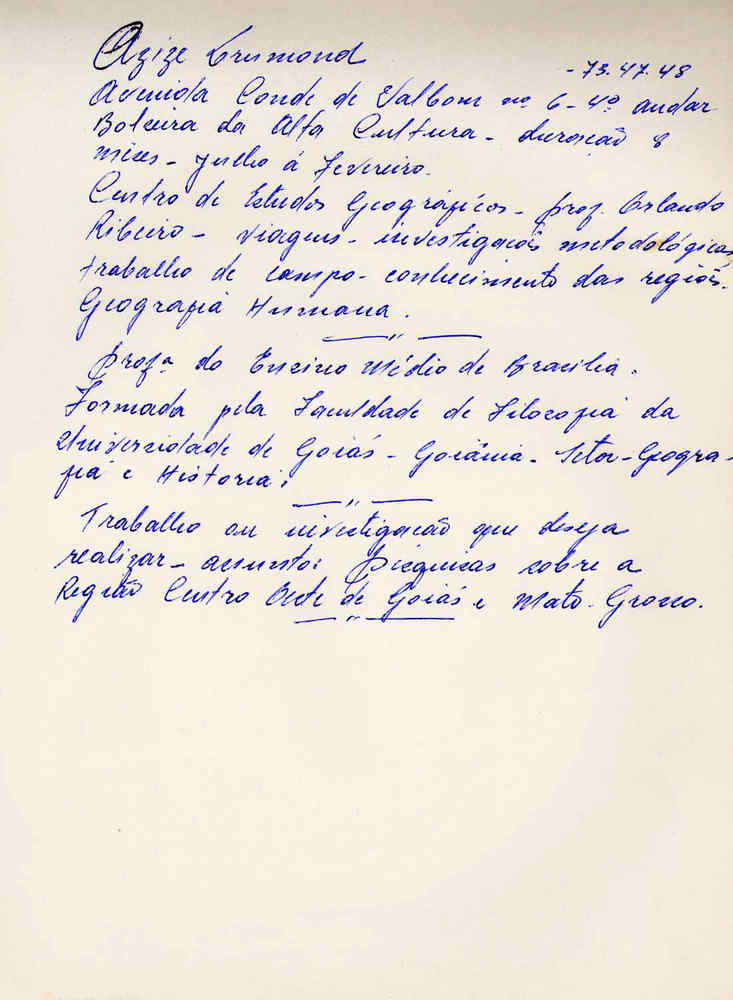 Azize Drumond - 73.47.48
Avenida Conde de Valbom nº 6 - 4º andar
Bolseira da Alta Cultura - duração 8
meses - Julho á Fevereiro.
Centro de Estudos Geográficos - prof. Orlando
Ribeiro - viagens - investigações metodológicas
trabalho de campo - conhecimento das regiões.
Geografia Humana.
Profª do Ensino Médio de Brasilia.
Formada pela Faculdade de Filosofia da
Universidade de Goiás - Goiânia - Setor - Geogra-
fia e Historia.
Trabalho ou investigação que deseja
realizar - assunto: Pesquisas sobre a
Região Centro Oeste de Goiás e Mato-Grosso.